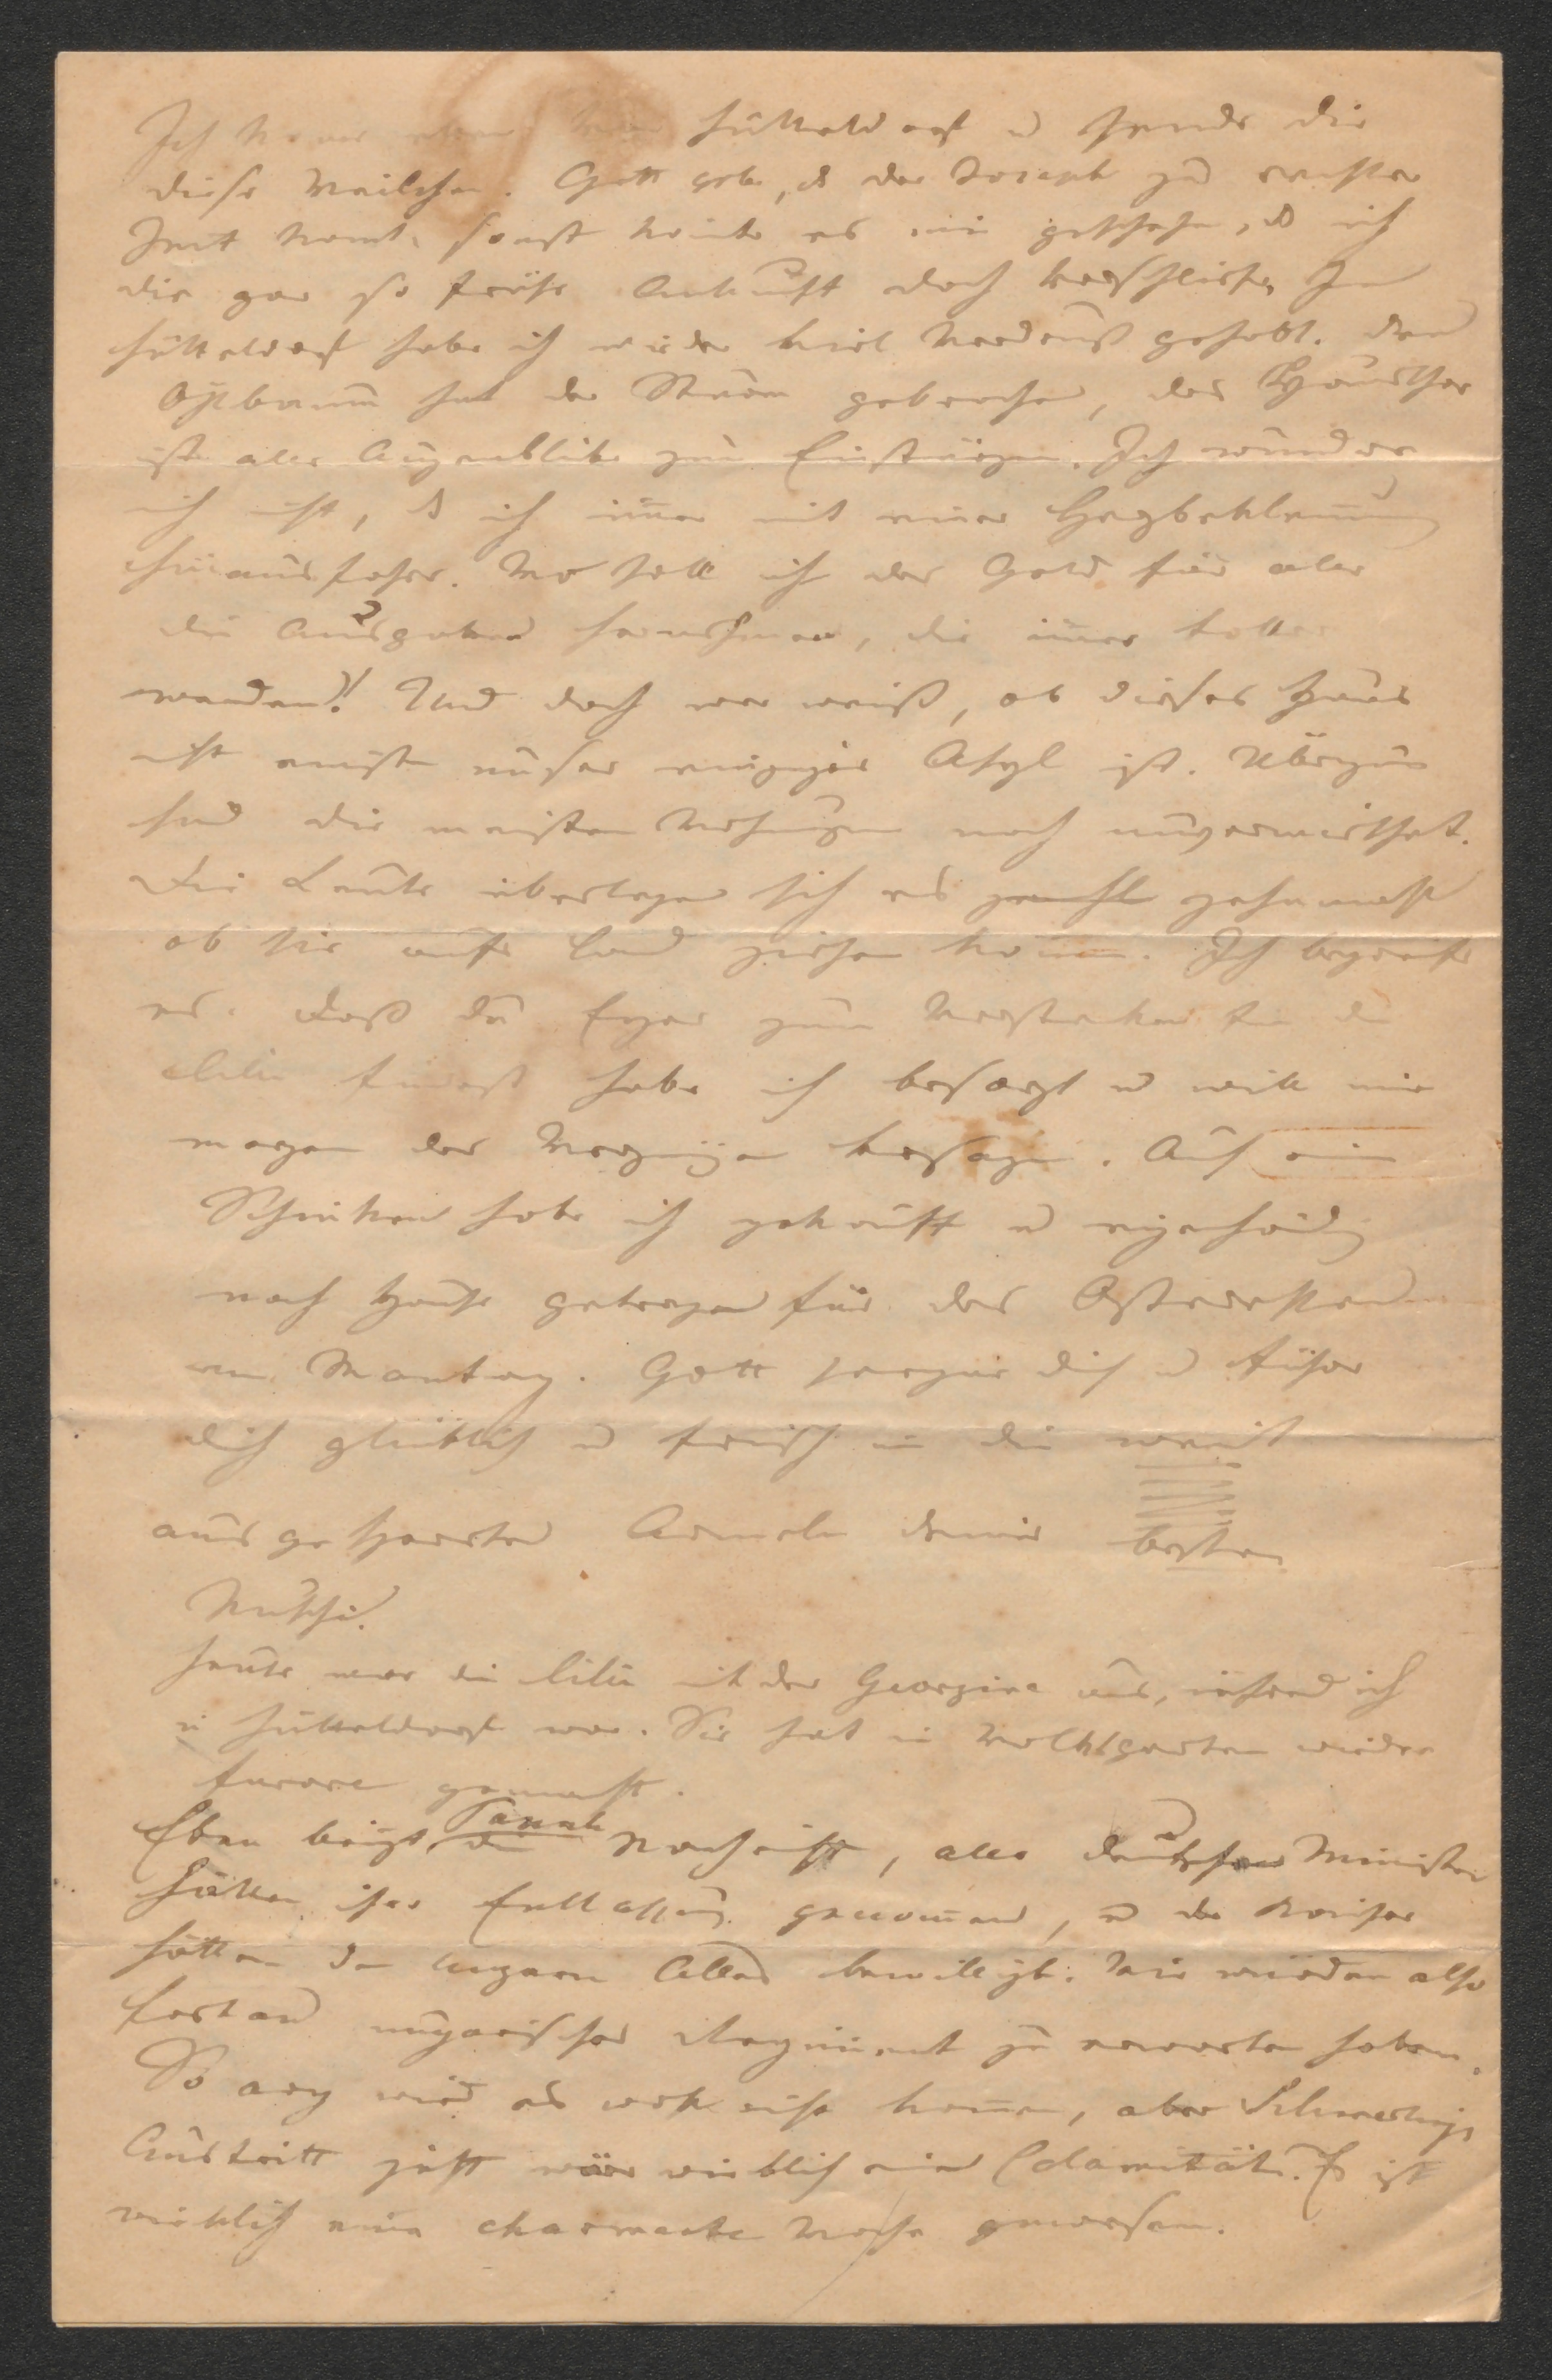 Ich komme eben von Hütteldorf u sende dir
diese Veilchen. Gott gebe, ds der Joseph zu rechter
Zeit komt, sonst könte es mir geschehen, ds ich
die gar so frühe Ankunft doch verschliefe. In
Hütteldorf habe ich wieder viel Verdruß gehabt. Den
Obstbaum hat der Sturm gebrochen, das Hausthor
ist alle Augenblike zum Einstürzen. Ich wundre
mich nicht, ds ich immer mit einer Herzbeklemmung
hinausfahre. Wo soll ich das Geld für alle
die Ausgaben hernehmen, die immer toller
werden?! Und doch wer weiß, ob dieses Haus
nicht einst unser einziges Asyl ist. Übrigens
sind die meisten Wohnungen noch unvermiethet.
Die Leute überlegen sich es zehnmal
ob sie aufs Land ziehen können. Ich begreife
es. Daß du Eyer zum Verstecken für die
Lili findest habe ich besorgt u will mir
morgen das Vergnügen versagen. Auch ein
Schinken habe ich gekauft u eigenhändig
nach Hause getragen für das Osteressen
am Montag. Gott segne dich u führe
dich glücklich u frisch in die weit
ausgesperrten Armeln deiner besten
Mutschi.
Heute war die Lili mit der Georgine aus, während ich
in Hütteldorf war. Sie hat im Volksgarten wieder
furore gemacht.
Eben bringt die Nachricht, alle deutschen Minister
hätten ihre Entlassung genommen, u der Kaiser
hätte den Ungarn Alles bewilligt. Wir würden also
fortan ungarisches Regiment zu erwarten haben.
So arg wird es wohl nicht kommen, aber Schmerlings
Austritt jetzt wäre wirklich eine Calamität. Es ist
wirklich eine charmante Woche gewesen.